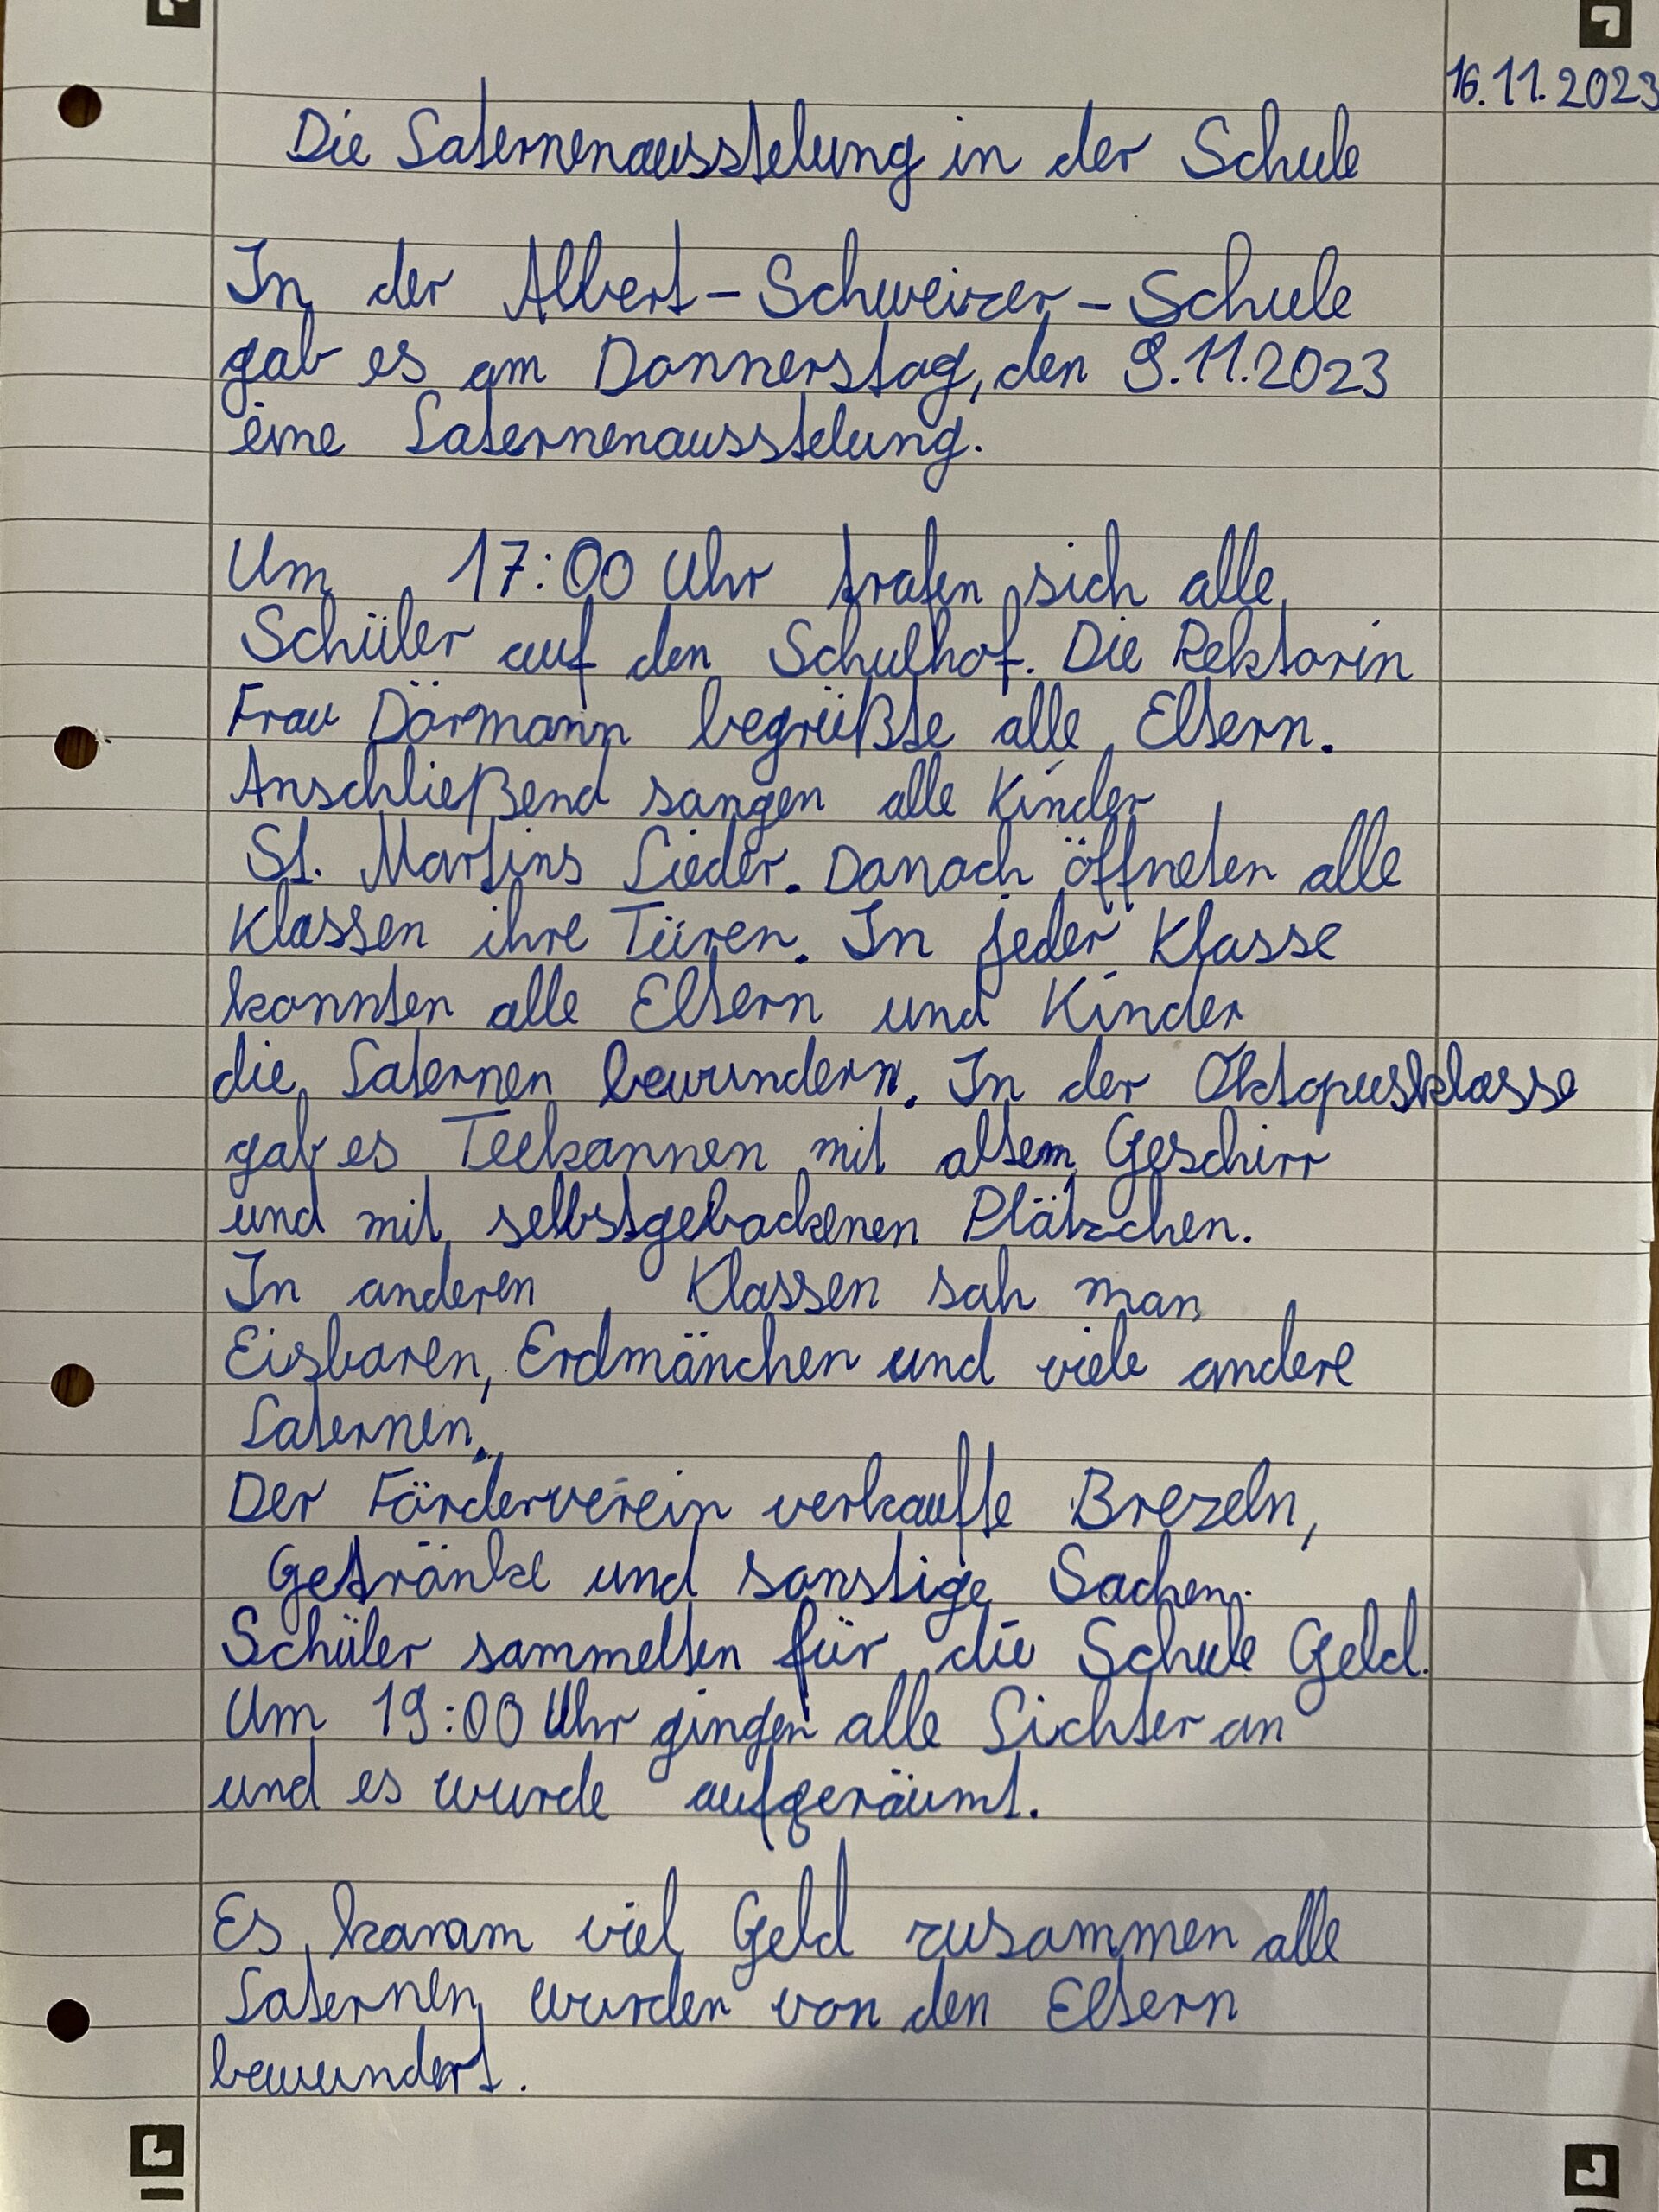 16.11.2023
Die Laternenausstelung in der Schule
In der Albert-Schweizer-Schule
gab es am Donnerstag, den 9.11.2023
eine Laternenausstelung.
Um 17:00 Uhr trafen sich alle
Schüler auf den Schulhof. Die Rektorin
Frau Dörmann begrüßte alle Eltern.
Anschließend sangen alle Kinder
St. Martins Lieder. Danach öffneten alle
Klassen ihre Türen. In jeder Klasse
konnten alle Eltern und Kinder
die Laternen bewundern. In der Oktopusklasse
gab es Teekannen mit altem Geschirr
und mit selbstgebackenen Plätzchen.
In anderen Klassen sah man
Eisbaren, Erdmänchen und viele andere
Laternen.
Der Förderverein verkaufte Brezeln,
Getränke und sonstige Sachen.
Schüler sammelten für die Schule Geld.
Um 19:00 Uhr gingen alle Lichter an
und es wurde aufgeräumt.
Es viel Geld zusammen alle
Laternen wurden von den Eltern
bewundert.